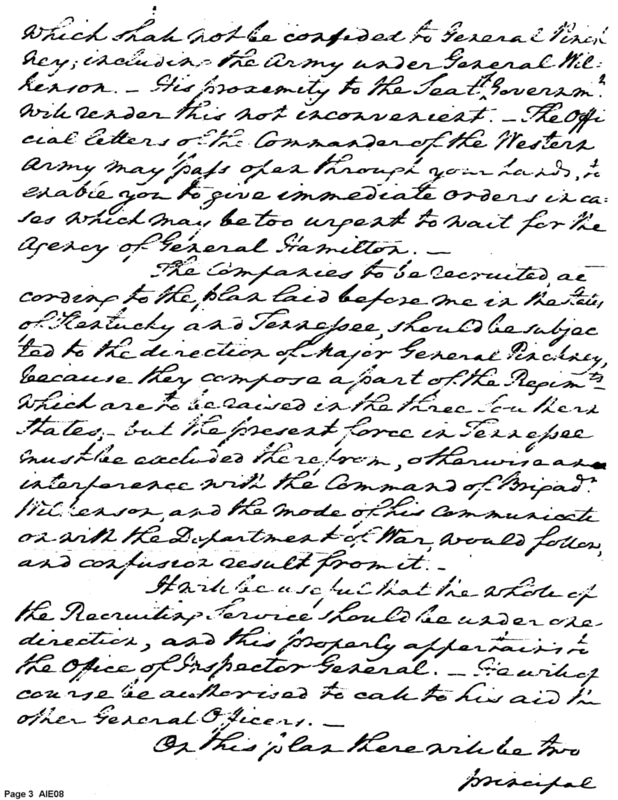 which shall not be confided to General Pinck
ney; including the Army under General Wil-
kenson. – His proximity to the Seat of Governm.t
will render this not inconvenient. – The Offi
cial letters of the Commander of the Western
Army may pass open through your hands, to
enable you to give immediate orders in ca-
ses which may be too urgent to wait for the
Agency of General Hamilton. –
The Companies to be recruited, ac
cording to the plan laid before me in the States
of Kentucky and Tennessee, should be subjec
ted to the direction of Major General Pinckney,
because they compose a part of the Regim.ts
which are to be raised in the three Southern
States, – but the present force in Tennessee
must be excluded therefrom, otherwise an
interference with the Command of Brigad.r
Wilkenson, and the mode of his communicati
on with the Department of War, would follow,
and confusion result from it. –
It will be useful that the whole of
the Recruiting Service should be under one
direction, and this properly appertains to
the Office of Inspector General. – He will of
course be authorised to call to his aid the
other General Officers. –
On this plan there will be two
principal
Page 3 AIE08